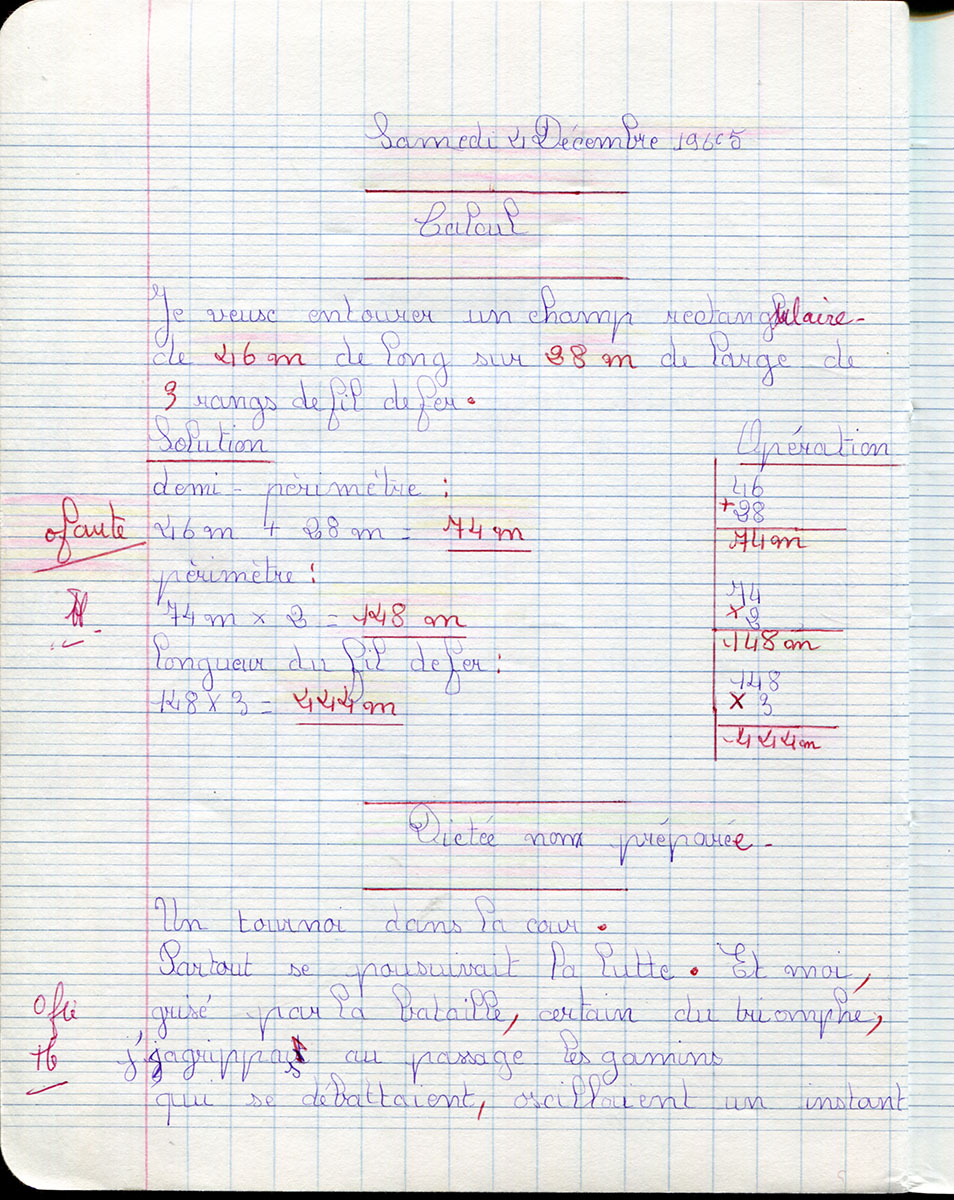 Samedi 4 Décembre 1965
Calcul
Je veux entourer un champ rectangulaire
de 46 m de long sur 28 m de large de
3 rangs de fil de fer.
Solution
Opération
demi-périmètre :
46
+ 28
74 m
0 faute
46 m + 28 m = 74 m
périmètre :
74
× 2
148 m
TB
74 m × 2 = 148 m
longueur du fil de fer :
148
× 3
444 m
148 × 3 = 444 m
Dictée non préparée.
Un tournoi dans la cour.
Partout se pousuivait la lutte. Et moi,
0 fte
grisé par la bataille, certain du triomphe,
TB
j'agrippais au passage les gamins
qui se débattaient, oscillaient un instant